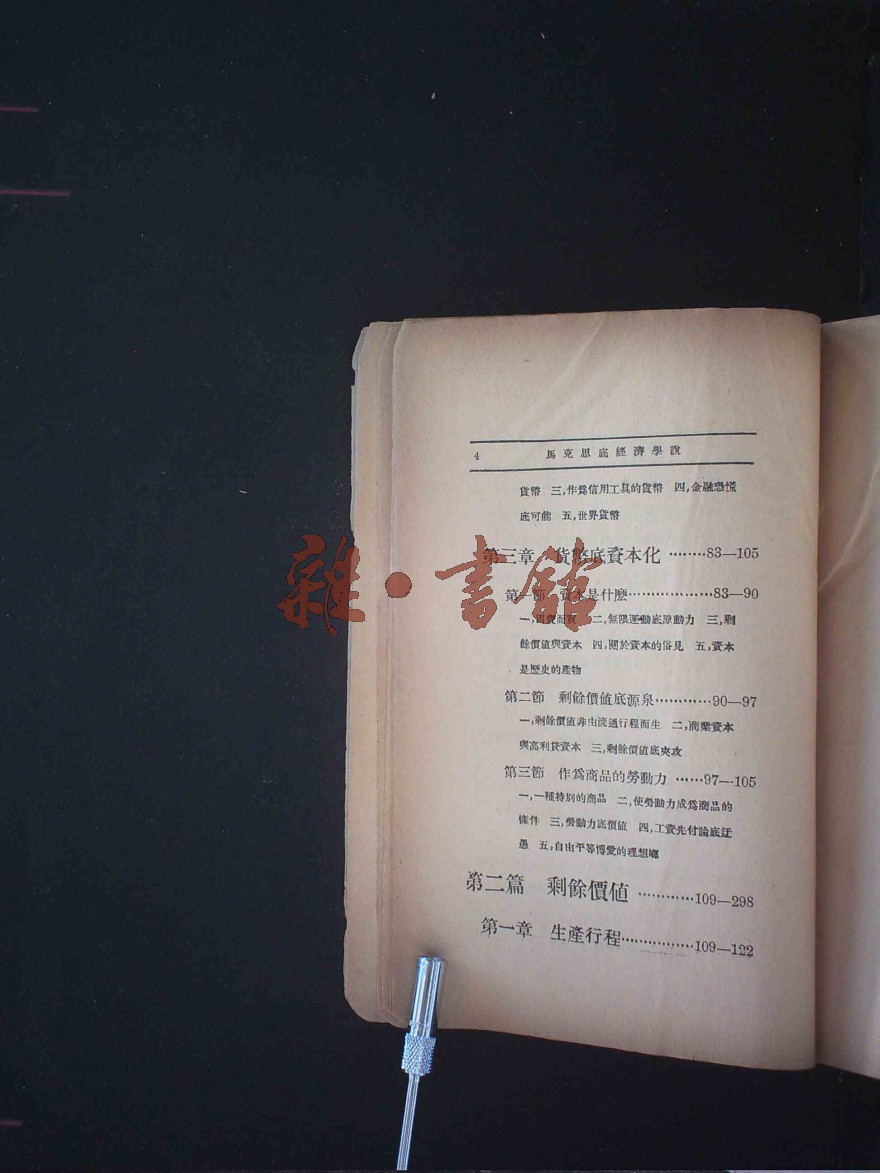 4 馬克思底經濟學說
貨幣 三,作爲信用工具的貨幣 四,金融恐慌
底可能 五,世界貨幣
第三章 貨幣底資本化 ········83—105
第一節 資本是什麽··················83—90
一,因賣而買 二,無限運動底原動力 三,剩
餘價値與資本 四,關於資本的俗見 五,資本
是歷史的產物
第二節 剩餘價値底源泉············90—97
一,剩餘價値非由流通行程而生 二,商業資本
與高利貸資本 三,剩餘價値底夾攻
第三節 作爲商品的勞動力 ······97—105
一,一種特別的商品 二,使勞動力成爲商品的
條件 三,勞動力底價値 四,工資先付論底迂
愚 五,自由平等博愛的理想鄕
第二篇 剩餘價値 ············109—298
第一章 生產行程···············109—122
雜·書館